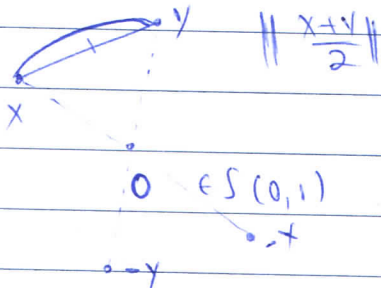 y
‖ x+y / 2 ‖
x
0 ∈ S(0,1)
-x
-y